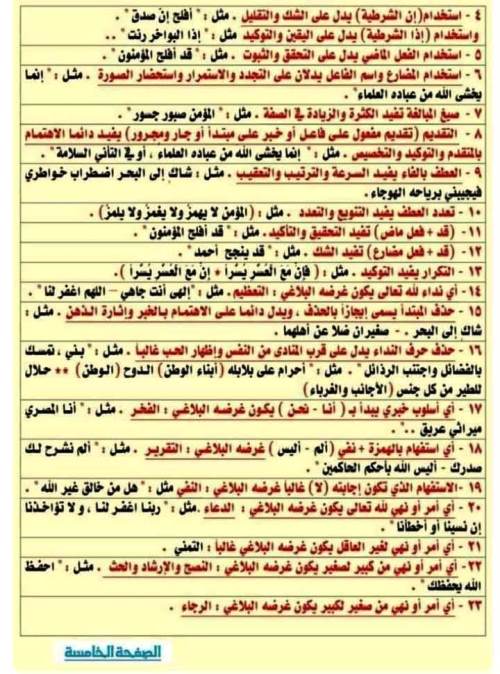 ٤ - استخدام(إن الشرطية) يدل على الشك والتقليل . مثل : " أفلح إنْ صدق " .
واستخدام (إذا الشرطية) يدل على اليقين والتوكيد مثل : " إذا البواخر رنت " ..
٥ - استخدام الفعل الماضي يدل على التحقق والثبوت . مثل : " قد أفلح المؤمنون " .
٦ - استخدام المضارع واسم الفاعل يدلان على التجدد والاستمرار واستحضار الصورة . مثل : " إنما
يخشى الله من عباده العلماء" .
٧ - صيغ المبالغة تفيد الكثرة والزيادة في الصفة . مثل : " المؤمن صبور جسور" .
٨ - التقديم (تقديم مفعول على فاعل أو خبر على مبتدأ أو جار ومجرور) يفيد دائما الاهتمام
بالمتقدم والتوكيد والتخصيص . مثل : " إنما يخشى الله من عباده العلماء ، أو في التأني السلامة " .
٩ - العطف بالفاء يفيد السرعة والترتيب والتعقيب . مثل : شاك إلى البحر اضطراب خواطري
فيجيبني برياحه الهوجاء .
١٠ - تعدد العطف يفيد التنويع والتعدد . مثل : (المؤمن لا يهمزُ ولا يغمزُ ولا يلمزُ) .
١١ - (قد + فعل ماض) تفيد التحقيق والتأكيد . مثل : " قد أفلح المؤمنون " .
١٢ - (قد + فعل مضارع) تفيد الشك . مثل : " قد ينجح أحمد " .
١٣ - التكرار يفيد التوكيد . مثل : ( فَإِنَّ مَعَ الْعُسْرِ يُسْرًا * إِنَّ مَعَ الْعُسْرِ يُسْرًا ) .
١٤ - أي نداء لله تعالى يكون غرضه البلاغي : التعظيم . مثل : "إلهى أنت جاهي – اللهم اغفر لنا " .
١٥ - حذف المبتدأ يسمى إيجازاً بالحذف ، ويدل دائما على الاهتمام بالخبر وإثارة الذهن . مثل :
شاك إلى البحر . - صغيران ضلا عن أهلهما .
١٦ - حذف حرف النداء يدل على قرب المنادى من النفس وإظهار الحب غالباً . مثل : " بني ، تمسك
بالفضائل واجتنب الرذائل " . مثل : " أحرام على بلابله (أبناء الوطن) الدوح (الوطن) ** حلال
للطير من كل جنس (الأجانب والغرباء)
١٧ - أي أسلوب خبري يبدأ بـ ( أنا - نحن ) يكون غرضه البلاغي : الفخر . مثل : " أنا المصري
ميراثي عريق .. " .
١٨ - أي استفهام بالهمزة + نفي (ألم - أليس ) غرضه البلاغي : التقرير . مثل : " ألم نشرح لك
صدرك - أليس الله بأحكم الحاكمين " .
١٩ -الاستفهام الذي تكون إجابته (لا) غالبا غرضه البلاغي : النفي مثل : " هل من خالق غير الله " .
٢٠ - أي أمر أو نهي لله تعالى يكون غرضه البلاغي : الدعاء . مثل : " ربنا اغفر لنا ، ولا تؤاخذنا
إن نسينا أو أخطأنا " .
٢١ - أي أمر أو نهي لغير العاقل يكون غرضه البلاغي غالباً : التمني .
٢٢ - أي أمر أو نهي من كبير لصغير يكون غرضه البلاغي : النصح والإرشاد والحث . مثل : " احفظ
الله يحفظك " .
٢٣ - أي أمر أو نهي من صغير لكبير يكون غرضه البلاغي : الرجاء .
الصفحة الخامسة